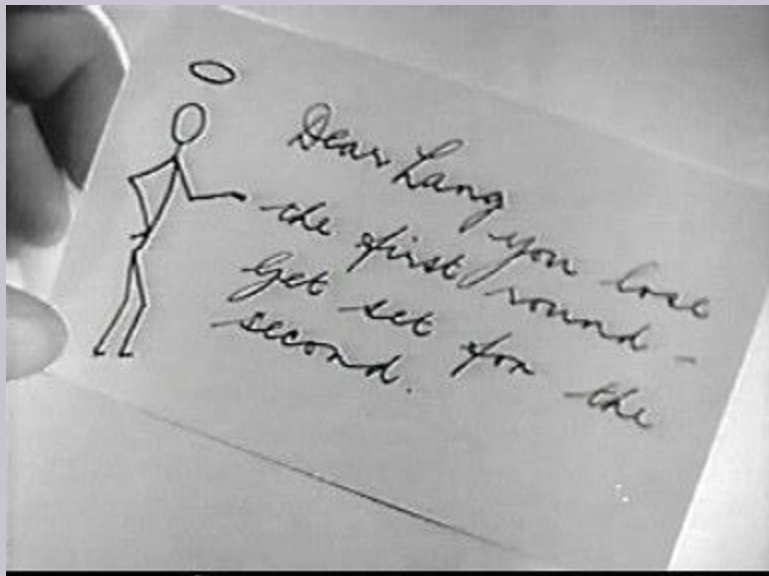 Dear Lang
you lose
the first round -
Get set for the
second.